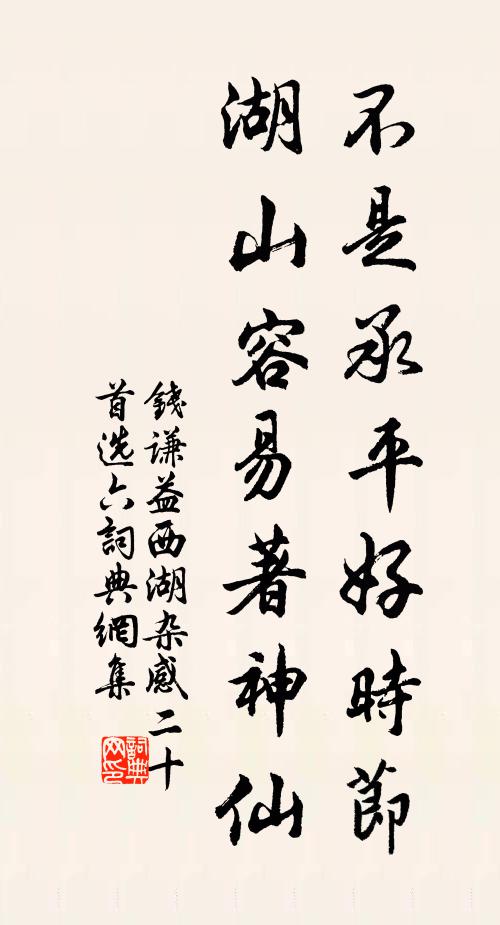 不是承平好時節
湖山容易著神仙
錢谦益西湖杂感二十
首选六詞典網集
詞典网印